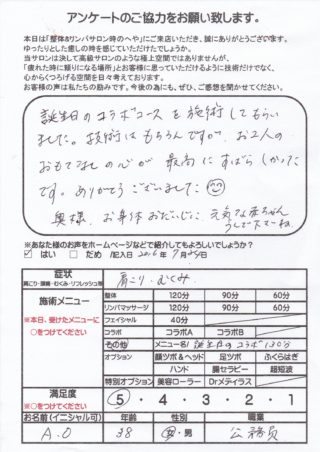 アンケートのご協力をお願い致します。
本日は「整体&リンパサロン時のへや」にご来店いただき、誠にありがとうございます。
ゆったりとした癒しの時を感じていただけたでしょうか。
当サロンは決して高級サロンのような極上空間ではありませんが、
「疲れた時に頼りになる場所」とお客様に思っていただけるように技術だけでなく、
心からくつろげる空間を日々考えております。
お客様の声は私たちの励みです。今後の為にも、ぜひ、ご感想を聞かせてください。
誕生日のコラボコースを施術してもらい
ました。技術はもちろんですが、お2人の
おもてなしの心が最高にすばらしかった
です。ありがとうございました
奥様、お身体おだいじに 元気な赤ちゃん
うんで下さいね
※あなた様のお声をホームページなどで紹介してもよろしいでしょうか?
☑ はい □ だめ /記入日 2016年 7月24日
症状
肩こり・頭痛・むくみ・リフレッシュ等
肩こり・むくみ
施術メニュー
※本日、受けたメニューに
○をつけてください
整体 120分 90分 60分
リンパマッサージ 120分 90分 60分
フェイシャル 40分
コラボ コラボA コラボB
その他 メニュー名/ 誕生日のコラボ 120分
オプション 顔ツボ&ヘッド 足ツボ ふくらはぎ
ハンド 腸セラピー 超短波
特別オプション 美容ローラー Dr.メディラス
満足度
※○をつけてください
5・4・3・2・1
お名前(イニシャル可) 年齢 性別 職業
A.O 38 女・男 公務員